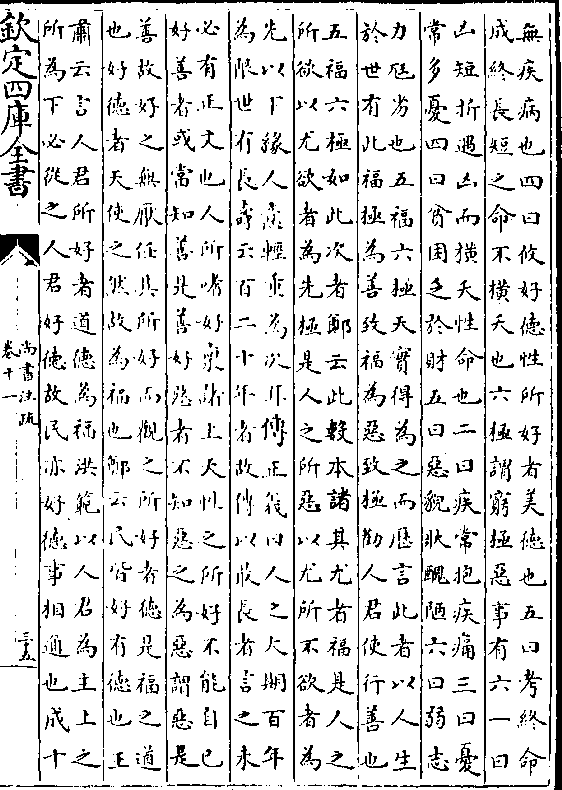 無疾病也四曰攸好德性所好者美德也五曰考終命
成終長短之命不橫夭也六極謂窮極惡事有六一曰
凶短折遇凶而橫夭性命也二曰疾常抱疾痛三曰憂
常多憂四曰貧困乏於財五曰惡貌狀醜陋六曰弱志
力尫劣也五福六極天實得為之而歷言此者以人生
於世有此福極為善致福為惡致極勸人君使行善也
五福六極如此次者鄭云此數本諸其尤者福是人之
所欲以尤欲者為先極是人之所惡以尤所不欲者為
先以下緣人意輕重為次耳傳正義曰人之大期百年
為限世有長壽云百二十年者故傳以最長者言之未
必有正文也人所嗜好稟諸上天性之所好不能自已
好善者或當知善是善好惡者不知惡之為惡謂惡是
善故好之無厭任其所好而觀之所好者德是福之道
也好德者天使之然故為福也鄭云民皆好有德也王
肅云言人君所好者道德為福洪範以人君為主上之
所為下必從之人君好德故民亦好德事相通也成十
欽定四庫全書
尚書注疏
卷十一
三五